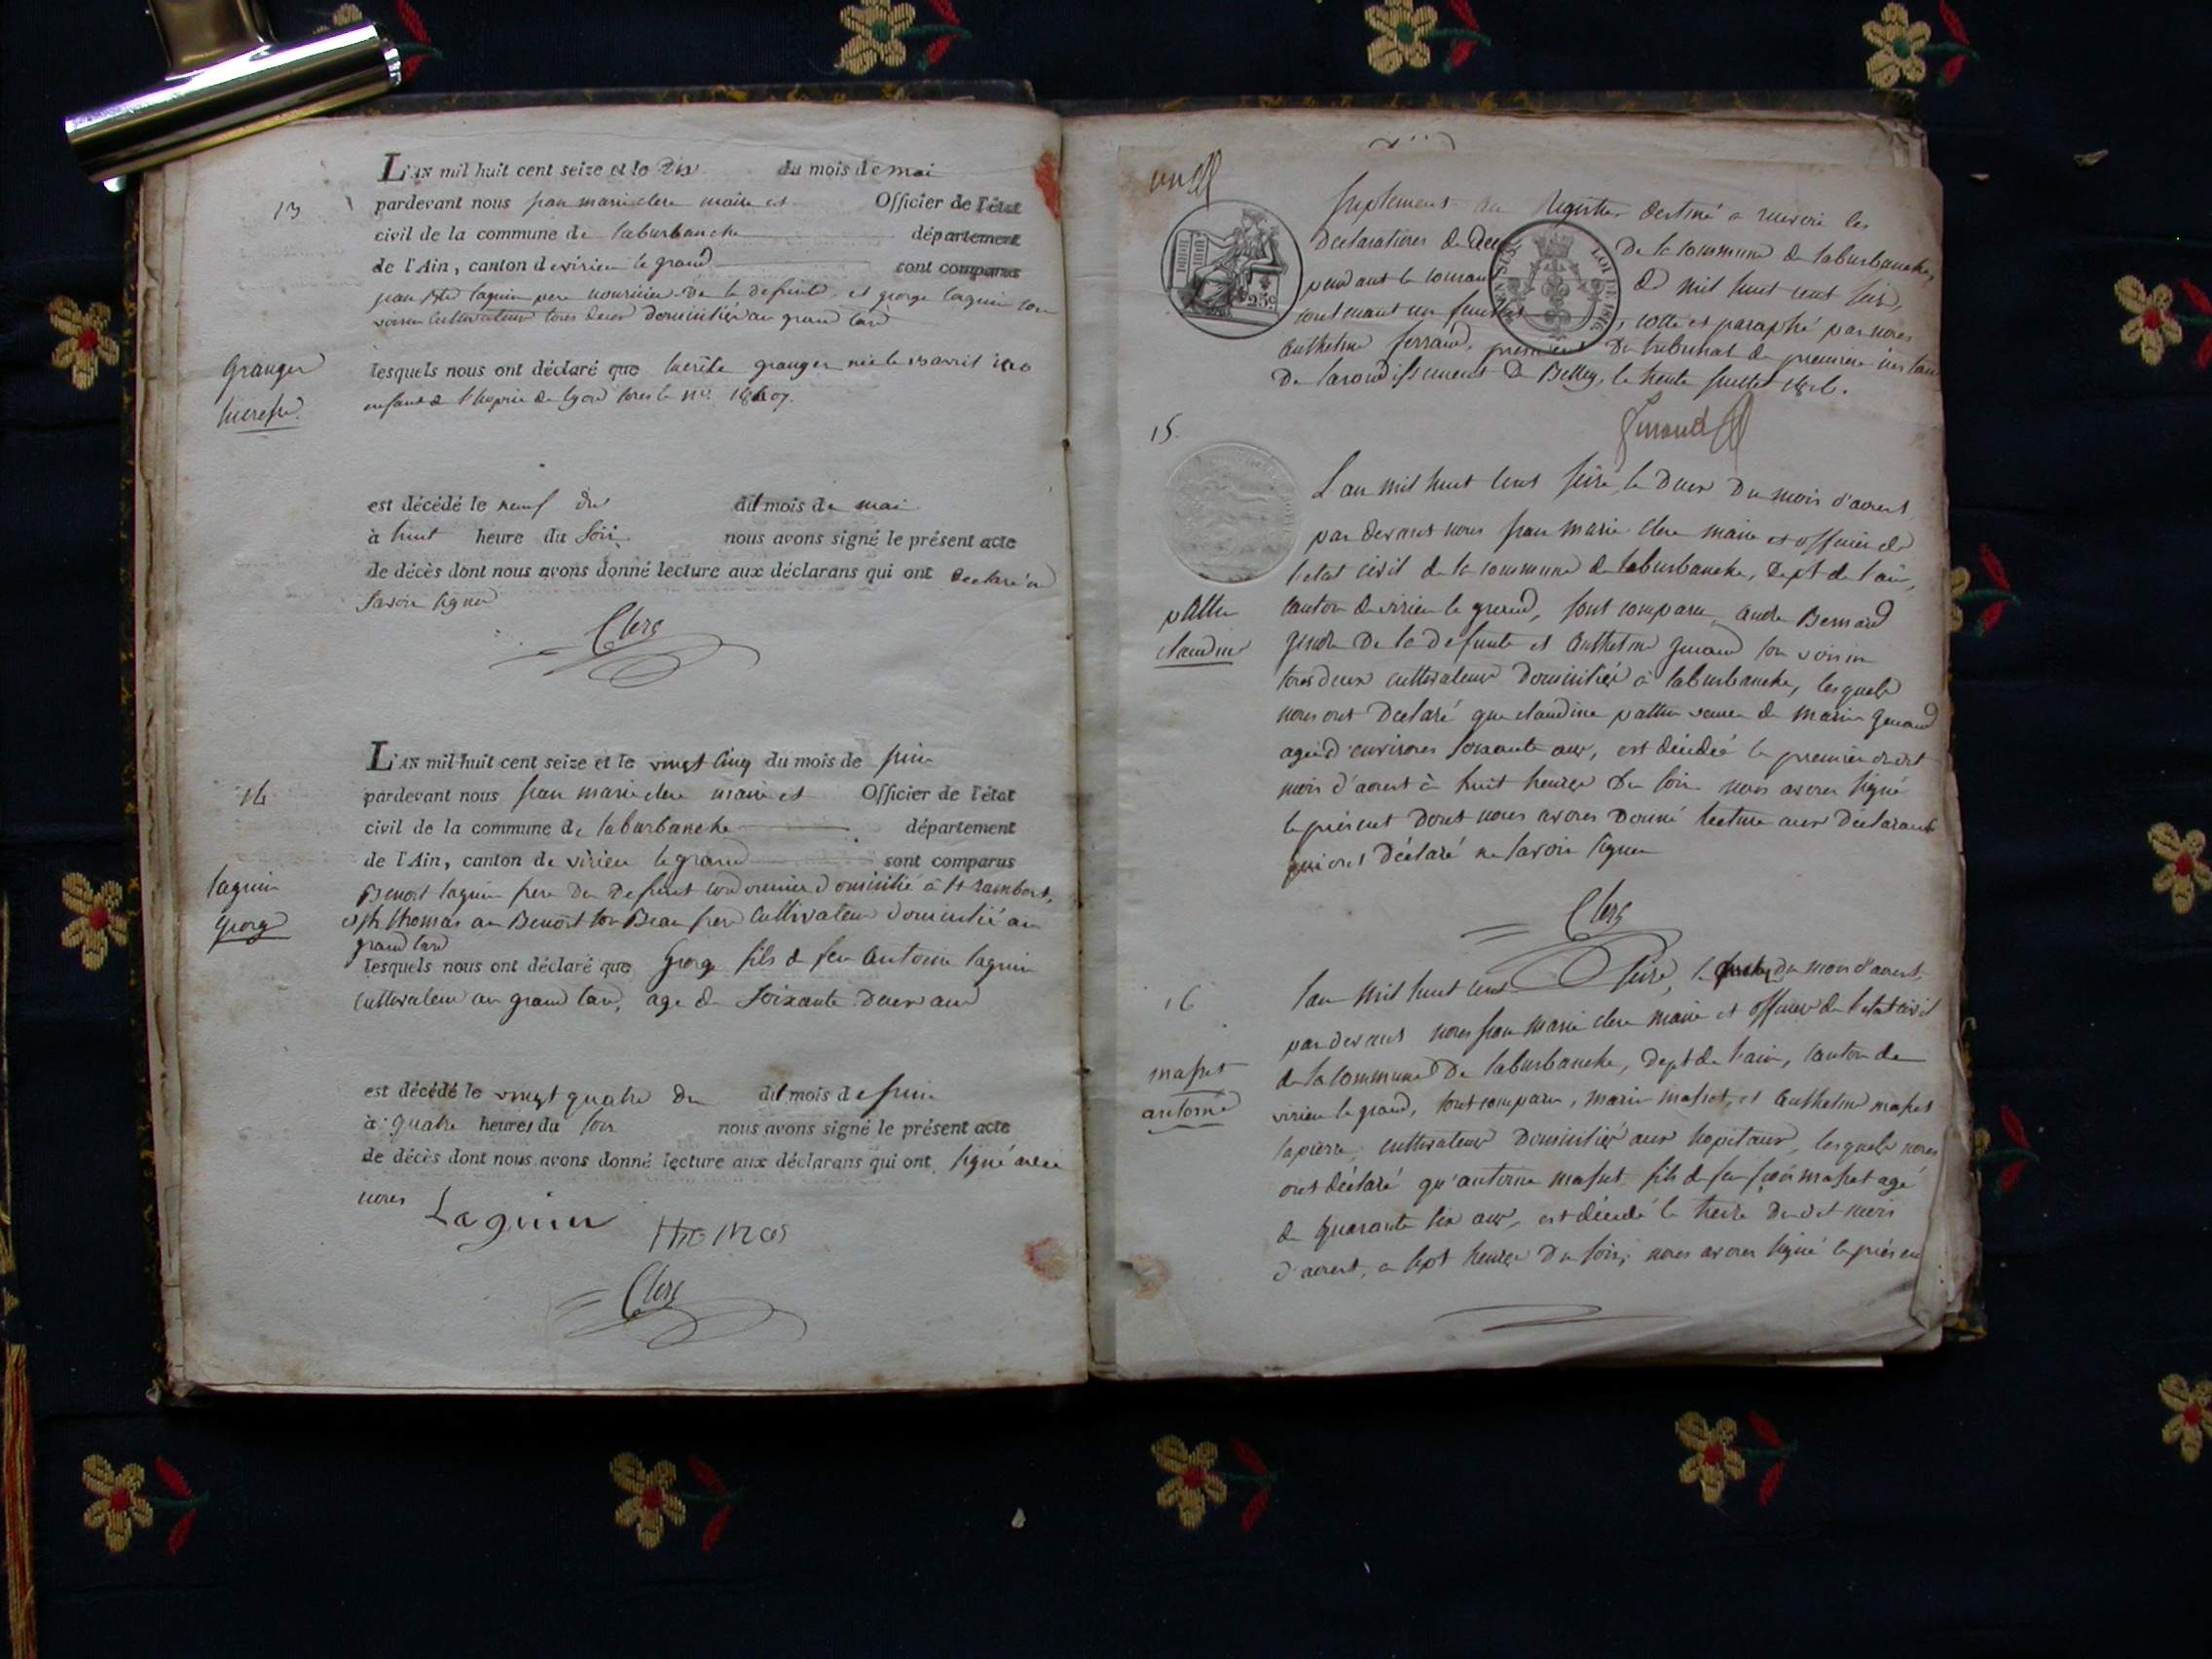 13
L'AN mil huit cent seize et le dix du mois de mai
pardevant nous jean marie clerc maire et Officier de l'état
civil de la commune de laburbanche département
de l'Ain, canton de virieu le grand sont comparus
jean laguin pere nouricier de la defunte et george laguin son
voisin cultivateurs tous deux domiciliés au grand
Granger
lucresse
lesquels nous ont déclaré que granger née le avril
enfant de l'hospice de lyon sous le n.o
est décédé le neuf du dit mois de mai
à huit heure du soir nous avons signé le présent acte
de décès dont nous avons donné lecture aux déclarans qui ont déclaré ne
savoir signer
Clerc
14
L'AN mil huit cent seize et le vingt cinq du mois de juin
pardevant nous jean marie clerc maire et Officier de l'état
civil de la commune de laburbanche département
de l'Ain, canton de virieu le grand sont comparus
laguin
george
Benoit laguin frere du defunt cordonnier domicilié à St rambert,
et thomas Benoit son Beau frere cultivateur domicilié au
grand
lesquels nous ont déclaré que George fils de feu antoine laguin
cultivateur au grand age de soixante deux ans
est décédé le vingt quatre du dit mois de juin
à quatre heures du soir nous avons signé le présent acte
de décès dont nous avons donné lecture aux déclarans qui ont signé avec
nous
Laguin Thomas
Clerc
Suplement au Registre destiné a recevoir les
declarations de de la commune de laburbanche,
pendant le courant de mil huit cent seize,
contenant un feuillet, cotté et paraphé par nous
anthelme ferrand, president du tribunal de premiere
de larondissement de Belley, le trente juillet 1816.
25c
LOI DE 1816
15.
L'an mil huit cent seize, le deux du mois d'aoust
par devant nous jean marie clerc maire et officier de
l'etat civil de la commune de laburbanche, dept de l'ain,
pattu
claudine
canton de virieu le grand, sont comparu andre Bernard
gendre de la defunte et anthelme son voisin
tous deux cultivateurs domiciliés à laburbanche, lesquels
nous ont declaré que claudine pattu veuve de marin
agée d'environs soixante ans, est décédée le premier dudit
mois d'aoust à huit heures du soir nous avons signé
le présent dont nous avons donné lecture aux déclarants
qui ont déclaré ne savoir signer
Clerc
16
l'an mil huit cent seize, le du mois d'aoust
par devant nous jean marie clerc maire et officier de l'etat civil
de la commune de laburbanche, dept de l'ain, canton de
masset
antoine
virieu le grand, sont comparu, marin masset, et anthelme masset
lapierre, cultivateurs domiciliés aux hopitaux, lesquels nous
ont déclaré qu'antoine masset fils de feu masset agé
de quarante six ans, est décédé le treize du dit mois
d'aoust, a sept heures du soir, nous avons signé le présent